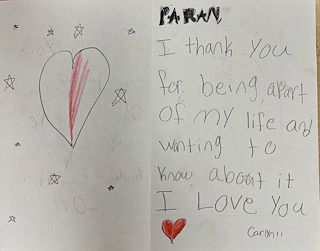 PARAN
I thank you
for being apart
of my life and
wanting to
know about it
I Love You